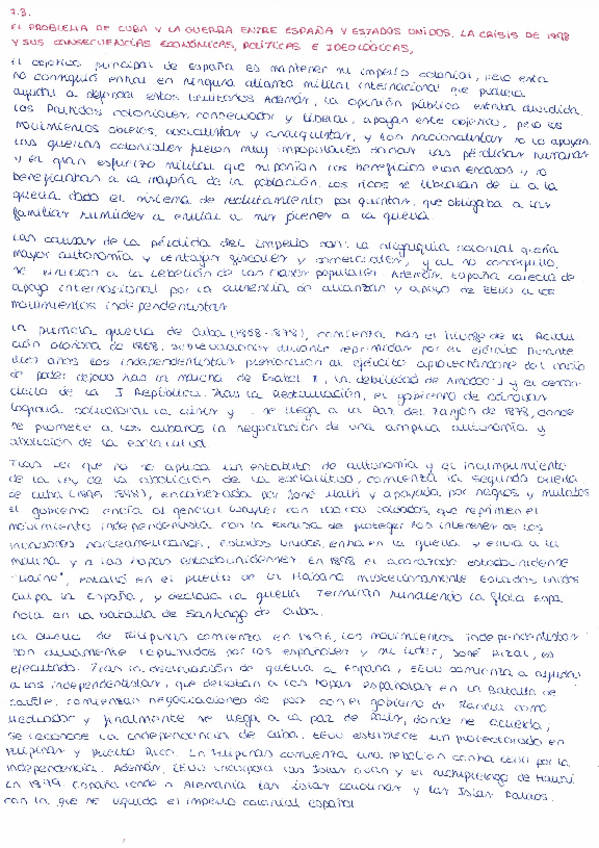 7.3.
EL PROBLEMA DE CUBA Y LA GUERRA ENTRE ESPAÑA Y ESTADOS UNIDOS. LA CRISIS DE 1898
Y SUS CONSECUENCIAS ECONÓMICAS, POLÍTICAS E IDEOLÓGICAS.
El objetivo principal de España es mantener su imperio colonial, pero esta
no consiguió entrar en ninguna alianza militar internacional que pudiera
ayudar a defender estos territorios Además, la opinión pública estaba dividida.
Los Partidos coloniales, conservador y liberal, apoyan este objetivo, pero los
movimientos obreros, socialistas y anarquistas, y los nacionalistas no lo apoyan.
Las guerras coloniales fueron muy impopulares las pérdidas humanas
y el gran esfuerzo militar que suponían los beneficios eran escasos y no
beneficiaban a la mayoría de la población. Los ricos se libraban de ir a la
guerra dado el sistema de reclutamiento por quintas, que obligaba a las
familias humildes a enviar a sus jóvenes a la guerra.
Las causas de la pérdida del imperio son: la oligarquía colonial quería
mayor autonomía y ventajas fiscales y comerciales, y al no conseguirlo,
se unieron a la rebelión de las clases populares. Además, España carecía de
apoyo internacional por la ausencia de alianzas y apoyo de EEUU a los
movimientos independentistas
La primera guerra de Cuba (1868-1878), comienza tras el triunfo de la Revolu-
ción Gloriosa de 1868. durante reprimidas por el ejército Durante
diez años los independentistas presionaron al ejército aprovechándose del vacío
de poder dejado tras la marcha de Isabel II, la debilidad de Amadeo I y el
de la I República. Tras la Restauración, el gobierno de Cánovas
lograría solucionar la crisis y se llega a la Paz del Zanjón de 1878, donde
se promete a los cubanos la negociación de una amplia autonomía y
abolición de la esclavitud
Tras ver que no se aplica un estatuto de autonomía y el incumplimiento
de la ley de la abolición de la esclavitud, comienza la segunda Guerra
de Cuba (1895-1898), encabezada por José Martí y apoyada por negros y mulatos
El gobierno envía al general Weyler con soldados, que reprimen el
movimiento independentista. con la excusa de proteger los intereses de los
inversores norteamericanos, Estados Unidos, entra en la guerra y envía a la
marina y a las tropas estadounidenses En 1898 el acorazado estadounidense
"Maine", estalló en el puerto de la Habana misteriosamente Estados Unidos
culpa a España, y declara la guerra Terminan hundiendo la flota Espa-
ñola en la batalla de Santiago de Cuba.
La Guerra de Filipinas comienza en 1896, los movimientos independentistas
son duramente reprimidos por los españoles y su líder, José Rizal, es
ejecutado. Tras la declaración de guerra a España, EEUU comienza a ayudar
a los independentistas, que derrotan a las tropas españolas en la batalla de
Cavite. comienzan negociaciones de paz con el gobierno de Francia como
mediador y finalmente se llega a la paz de París, donde se acuerda:
se reconoce la independencia de Cuba. EEUU establece un protectorado en
Filipinas y Puerto Rico. En Filipinas comienza una rebelión contra EEUU por la
independencia. Además, EEUU incorpora las Islas Guam y el archipiélago de Hawái
En 1899. España vende a Alemania las islas Carolinas y las Islas Palaos.
con lo que se liquida el imperio colonial español